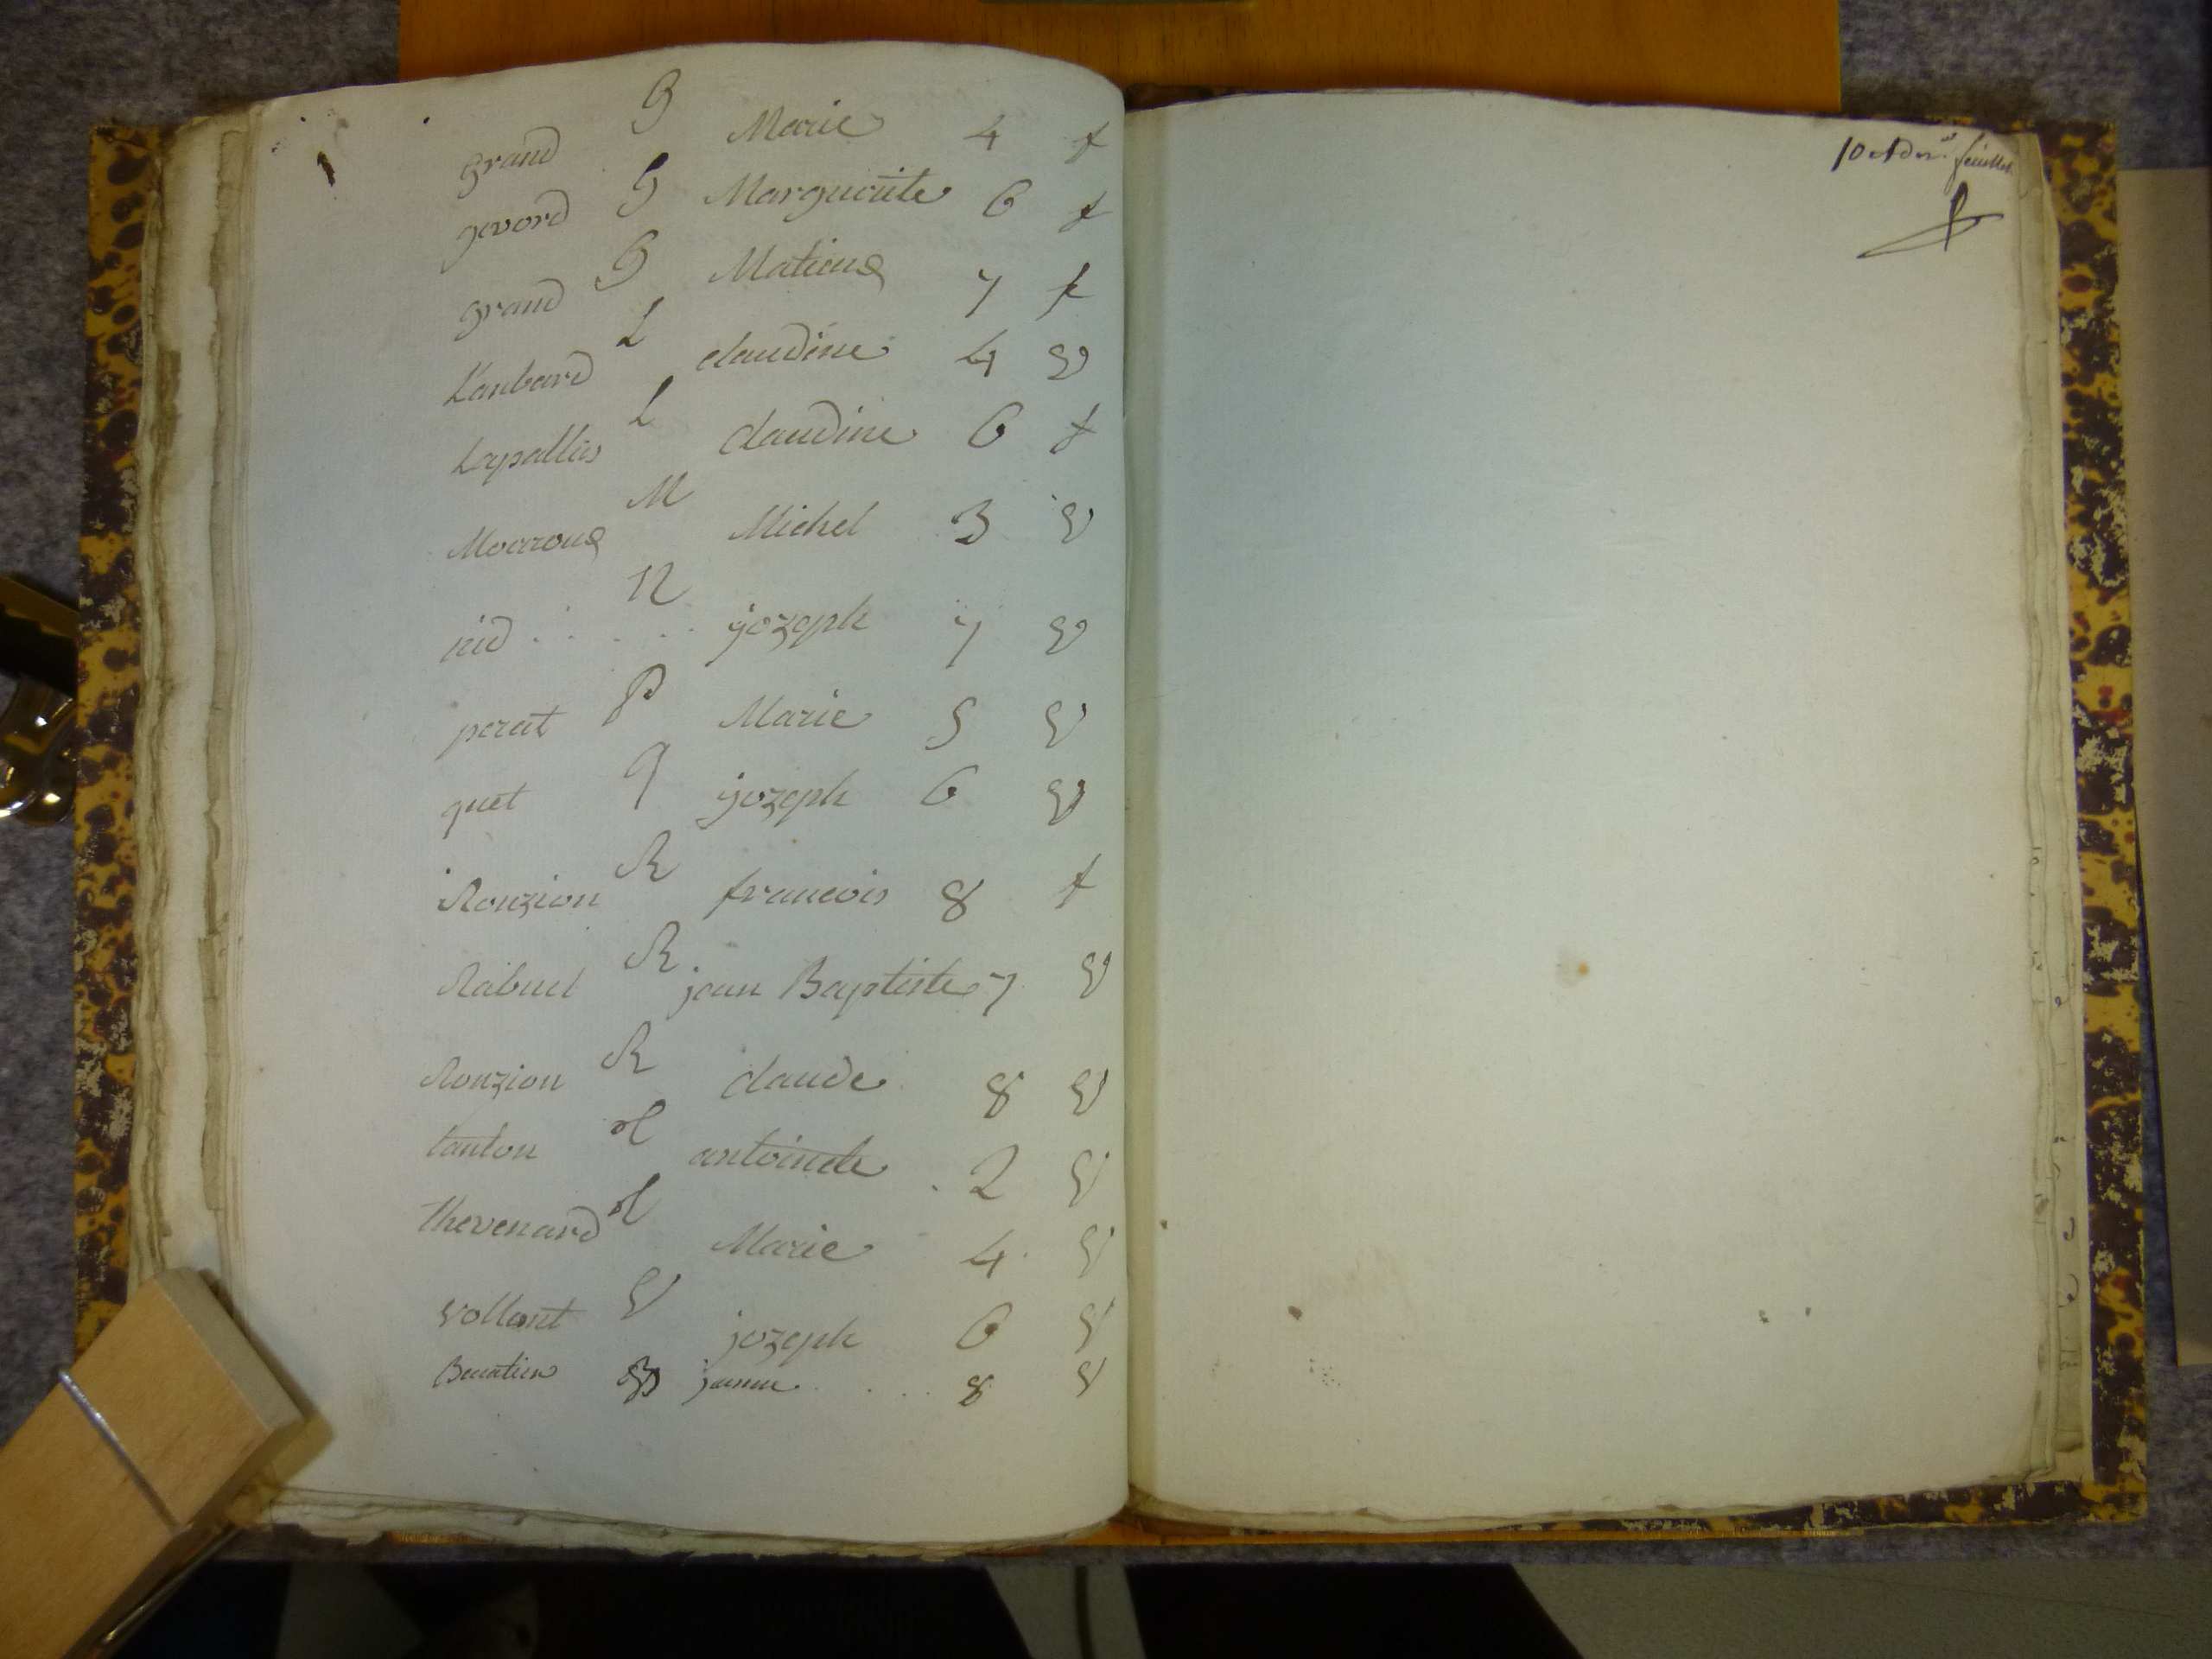 G
grand Marie 4 f
G
gevord Marguerite 6 f
G
grand Matieu 7 f
L
Lanbard claudine 4 V
L
Lapallus claudine 6 f
M
Michel 3 V
N
nid jozeph 7 V
P
perat Marie 5 V
q
quet jozeph 6 V
R
Ronzion francois 8 f
R
Rabuel jean Baptiste 7 V
R
Ronzion claude 8 V
t
tanton antoinete 2 V
t
thevenard Marie 4 V
V
vollant jozeph 6 V
B janne 8 V
10 et feuillet